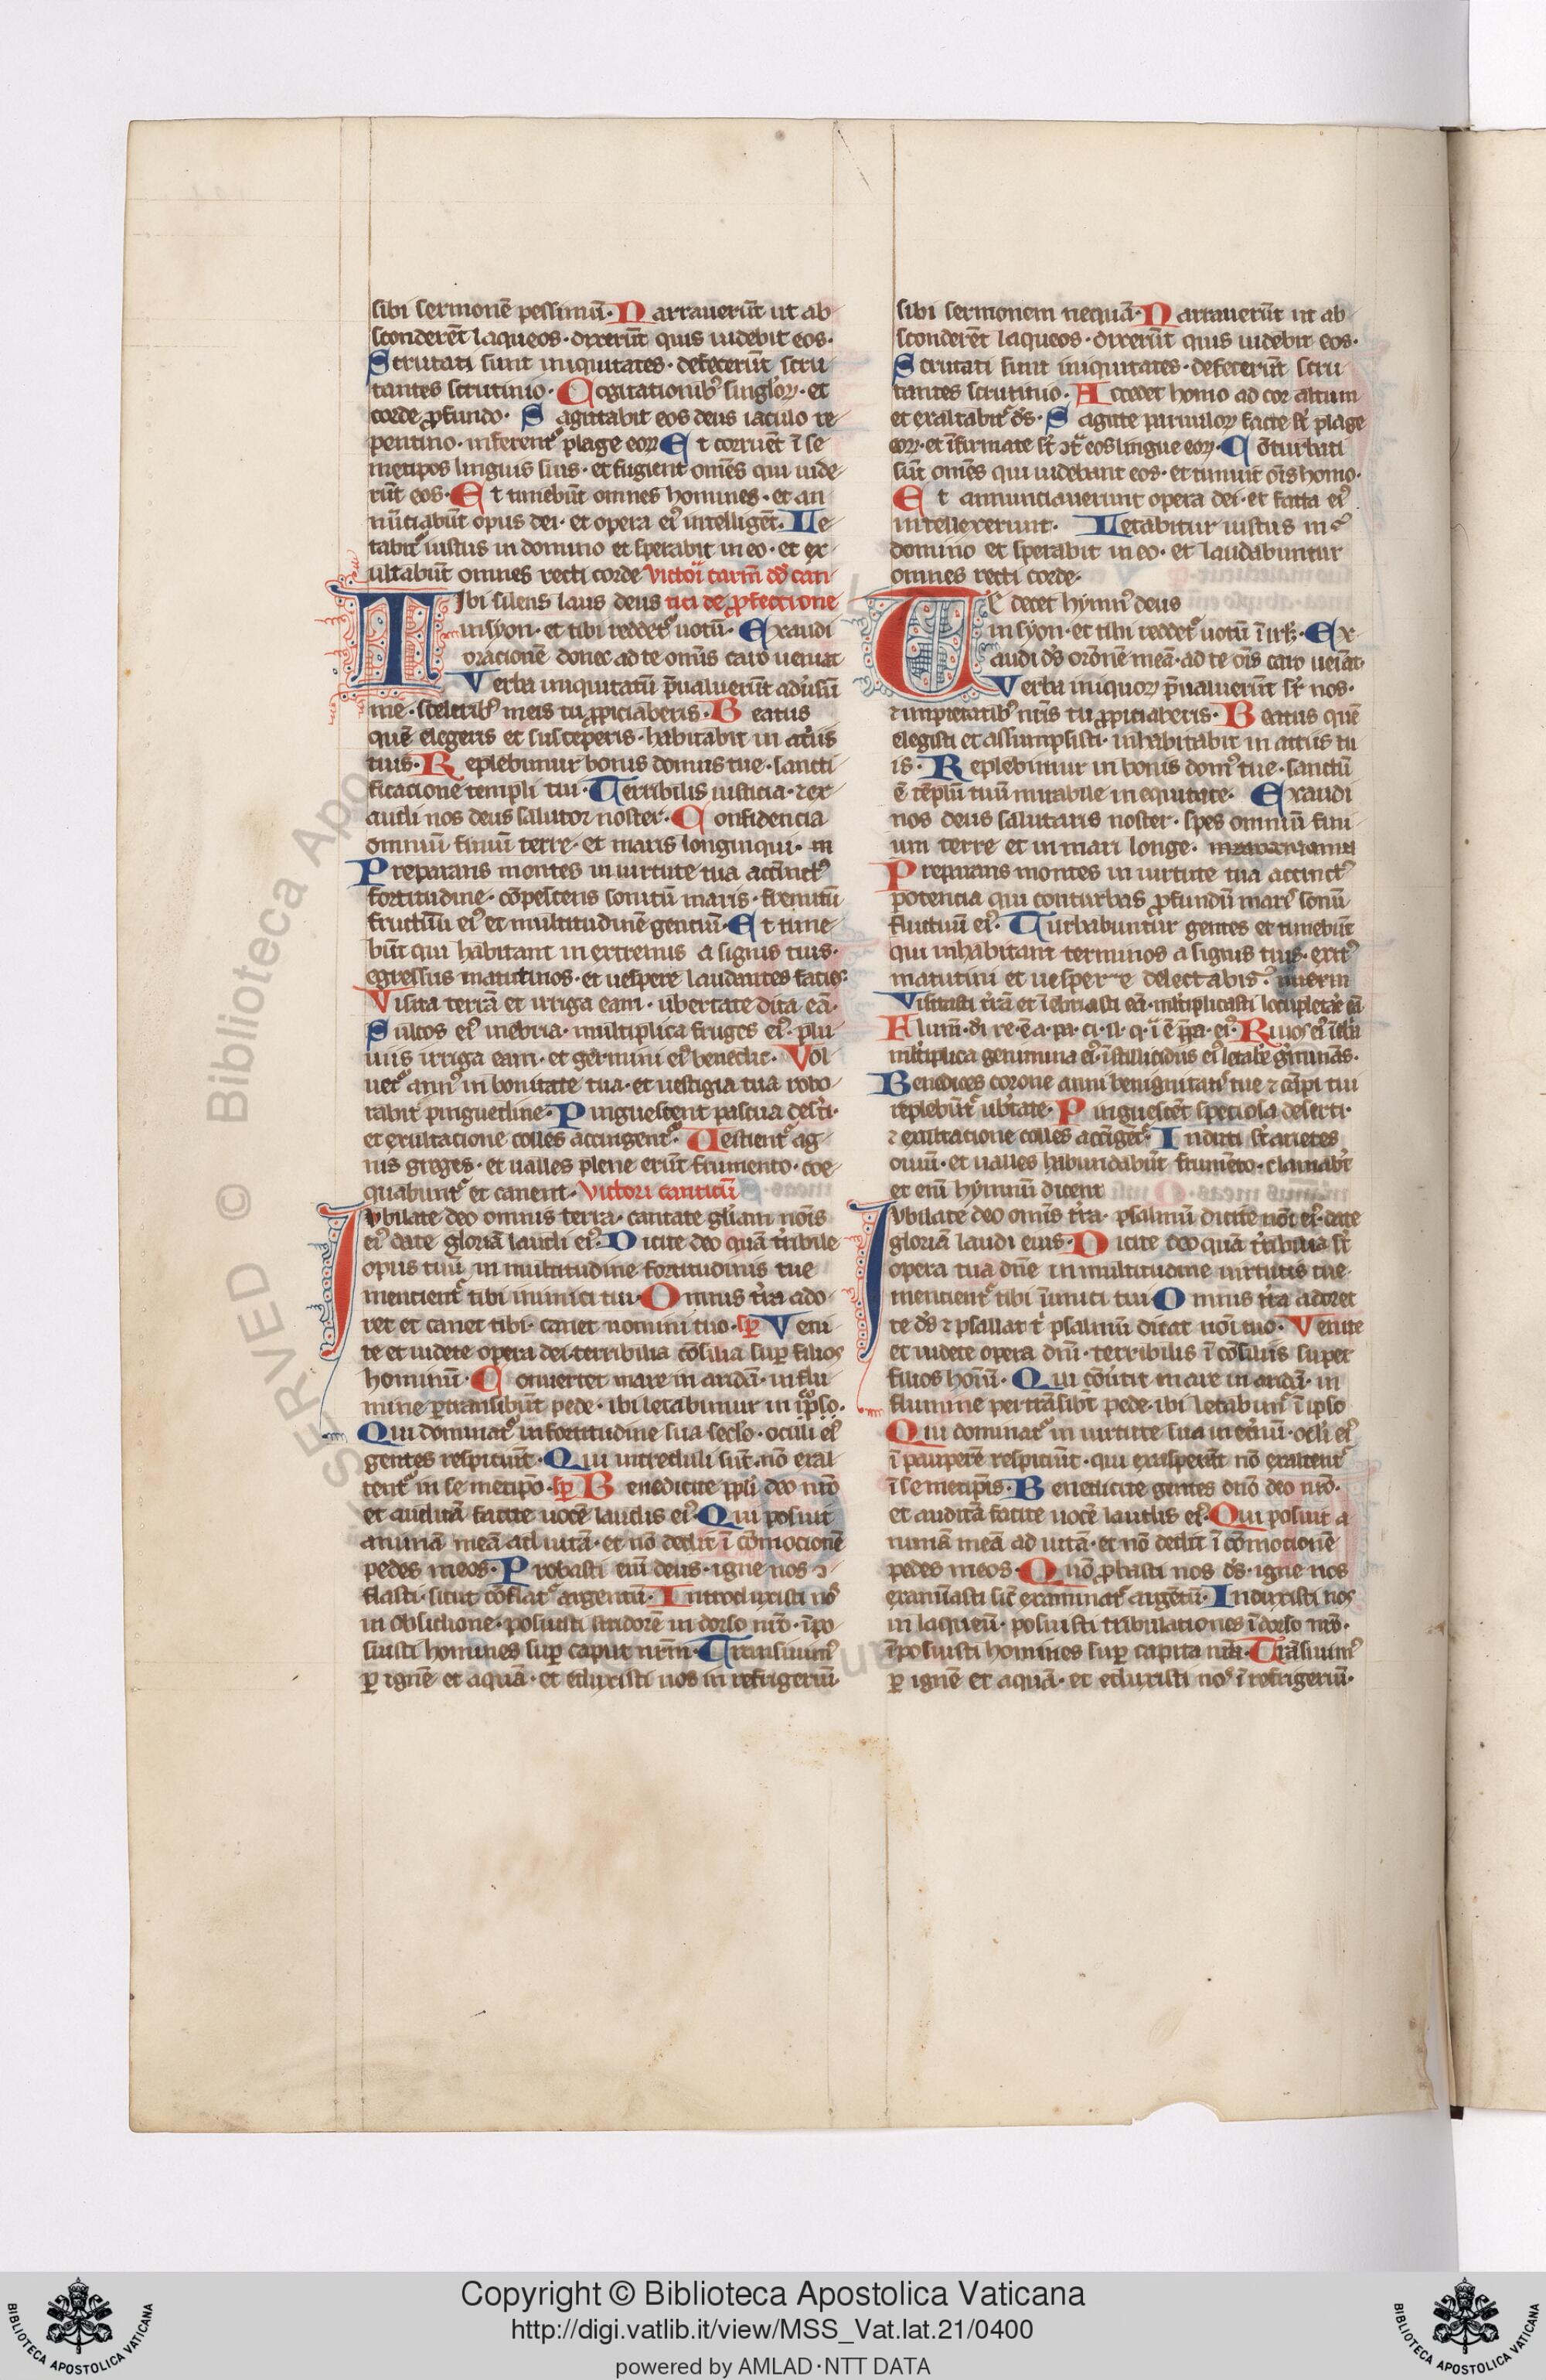 sibi sermonē pessimū· Narrauerūt ut ab
sconderēt laqueos· dixerūt quis uidebit eos·
Scrutati sunt iniquitates· defecerūt scru
tantes scrutinio· Cogitationibꝰ singlorꝝ· et
corde ꝓfundo· Sagittabit eos deus iaculo re
pentino· inferentᷣ plage eorꝝ Et corruēt ī se
metipos linguis suis· et fugient omēs qui uide
rūt eos· Et timebūt omnes homines· et an
nūciabūt opus dei· et opera eiꝰ intelligēt· Le
tabitᷣ iustus in domino et sperabit in eo· et ex
ultabūt omnes recti corde
Tibi silens laus deus
in syon· et tibi reddetᷣ uotū· Exaudi
oracionē donec ad te omīs caro ueniat
Verba iniquitatū p̄ualuerūt adūsū
me· sceleribꝰ meis tu ꝓpiciaberis· Beatus
quē elegeris et susceperis· habitabit in atriis
tuis· Replebimur bonis domus tue· sancti
ficacione templi tui· Terribilis iusticia· ⁊ ex
audi nos deus salutor noster· Confidencia
omniū finiū terre· et maris longinqui· m
Preparans montes in uirtute tua accīnctꝰ
fortitudine· cōpescens sonitū maris· fremitū
fluctuū eiꝰ et multitudinē gentiū· Et time
būt qui habitant in extremis a signis tuis·
egressus matutinos· et uespere laudantes facies·
Visita terrā et irriga eam· ubertate dita eā·
Sulcos eiꝰ inebria· multiplica fruges eiꝰ· plu
uiis irriga eam· et germini eiꝰ benedic· Vol
uetᷣ annꝰ in bonitate tua· et uestigia tua robo
rabūt pinguedine· Pinguescent pascua deserti·
et exultacione colles accingentᷣ· Uestientᷣ ag
nis greges· et ualles plene erūt frumento· coe
quabuntᷣ et canent· Victori canticū
Iubilate deo omnis terra· cantate gliam nōis
eiꝰ date gloriā laudi eiꝰ· Dicite deo quā tribile
opus tuū in multitudine fortitudinis tue
mencientᷣ tibi inimici tui· Omnis tra ado
ret et canet tibi· canet nomini tuo· Veni
te et uidete opera dei· terribilia cōsilia suꝑ filios
hominū· Conuertet mare in aridā· in flu
mine ꝑtransibūt pede· ibi letabimur in ipso·
Qui dominatᷣ in fortitudine sua seclo· oculi eiꝰ
gentes respiciūt· Qui increduli sūt· nō exal
tentᷣ in se metipo· Benedicite ppli deo nro
et auditā facite uocē laudis eiꝰ· Qui posuit
animā meā ad uitā· et nō dedit ī cōmocionē
pedes meos· Probasti enī deus· igne nos ɔ
flasti· sicut cōflatᷣ argentū· Introduxisti nos
in obsidione· posuisti stridorē in dorso nro· īpo
suisti homines suꝑ caput nrm· Transiuimꝰ
ꝑ ignē et aquā· et eduxisti nos in refrigeriū·
sibi sermonem nequā· Narrauerūt ut ab
sconderēt laqueos· dixerūt quis uidebit eos·
Scrutati sunt iniquitates· defecerūt scru
tantes scrutinio· Accedet homo ad cor altum
et exaltabitᷣ ds· Sagitte paruulorꝝ facte sūt plage
eorꝝ· et īfirmate sūt ɔtᷓ eos lingue eorꝝ· Cōturbati
sūt omēs qui uidebant eos· et timuit ois homo·
Et annunciauerunt opera dei· et facta eiꝰ
intellexerunt· Letabitur iustus in
domino et sperabit in eo· et laudabuntur
omnes recti corde·
Te decet hymnꝰ deus
in syon· et tibi reddetᷣ uotū ī irlm· Ex
audi ds oronē meā· ad te ois caro ueniat·
Verba iniquorꝝ p̄ualuerūt sr nos·
⁊ impietatibꝰ nris tu ꝓpiciaberis· Beatus quē
elegisti et assumpsisti· inhabitabit in atriis tu
is· Replebimur in bonis domꝰ tue· sanctū
ē tēplū tuū mirabile in equitate· Exaudi
nos deus salutaris noster· spes omniū fini
um terre et in mari longe·
Preparans montes in uirtute tua accinctꝰ
potencia qui conturbas ꝓfundū marꝭ sonū
fluctuū eiꝰ· Turbabuntur gentes et timebūt
qui inhabitant terminos a signis tuis· exitꝰ
matutini et uespere delectabis·
Visitasti trā et īebriasti eā· mltiplicasti locupletare eā
Flum· di re· ē a· pa· ci· il· q· ī ē ppa· eiꝰ· Riuos eiꝰ īebria
mltiplica genimina eiꝰ· ī stillicidiis eiꝰ letabr gminās·
Benedices corone anni benignitatꝭ tue ⁊ cāpi tui
replebūtᷣ ubtate· Pinguescēt speciosa deserti·
⁊ exultatione colles accīgētᷣ· Induti sūt arietes
ouiū· et ualles habundabūt frumēto· clamabūt
et enī hymnū dicent
Iubilate deo omīs tra· psalmū dicite nōi eiꝰ· date
gloriā laudi eius· Dicite deo quā tribilia sūt
opera tua dne in multitudine uirtutis tue·
mencientᷣ tibi īimici tui Omnis tra adoret
te ds ⁊ psallat t psalmū dicat nōi tuo· Venite
et uidete opera dni· terribilis ī cōsiliis super
filios homī· Qui cōuertit mare in aridā· in
flumine pertrāsibūt pede· ibi letabimᷣ ī ipso
Qui dominatᷣ in uirtute sua in eternū· ocli eiꝰ
ī pauperē respiciūt· qui exasperāt nō exaltentᷣ
ī semetipsis· Benedicite gentes dno deo nro·
et auditā facite uocē laudis eiꝰ· Qui posuit a
nimā meā ad uitā· et nō dedit ī cōmocionē
pedes meos· Qnō ꝓbasti nos ds· igne nos
examīasti sic examinatᷣ argētū· Induxisti nos
in laqueū· posuisti tribulationes ī dorso nro·
īposuisti homines suꝑ capita nra· Trāsiuimꝰ
ꝑ ignē et aquā· et eduxisti nos ī refrigeriū·
Copyright © Biblioteca Apostolica Vaticana
http://digi.vatlib.it/view/MSS_Vat.lat.21/0400
powered by AMLAD·NTT DATA
BIBLIOTECA APOSTOLICA VATICANA
BIBLIOTECA APOSTOLICA VATICANA